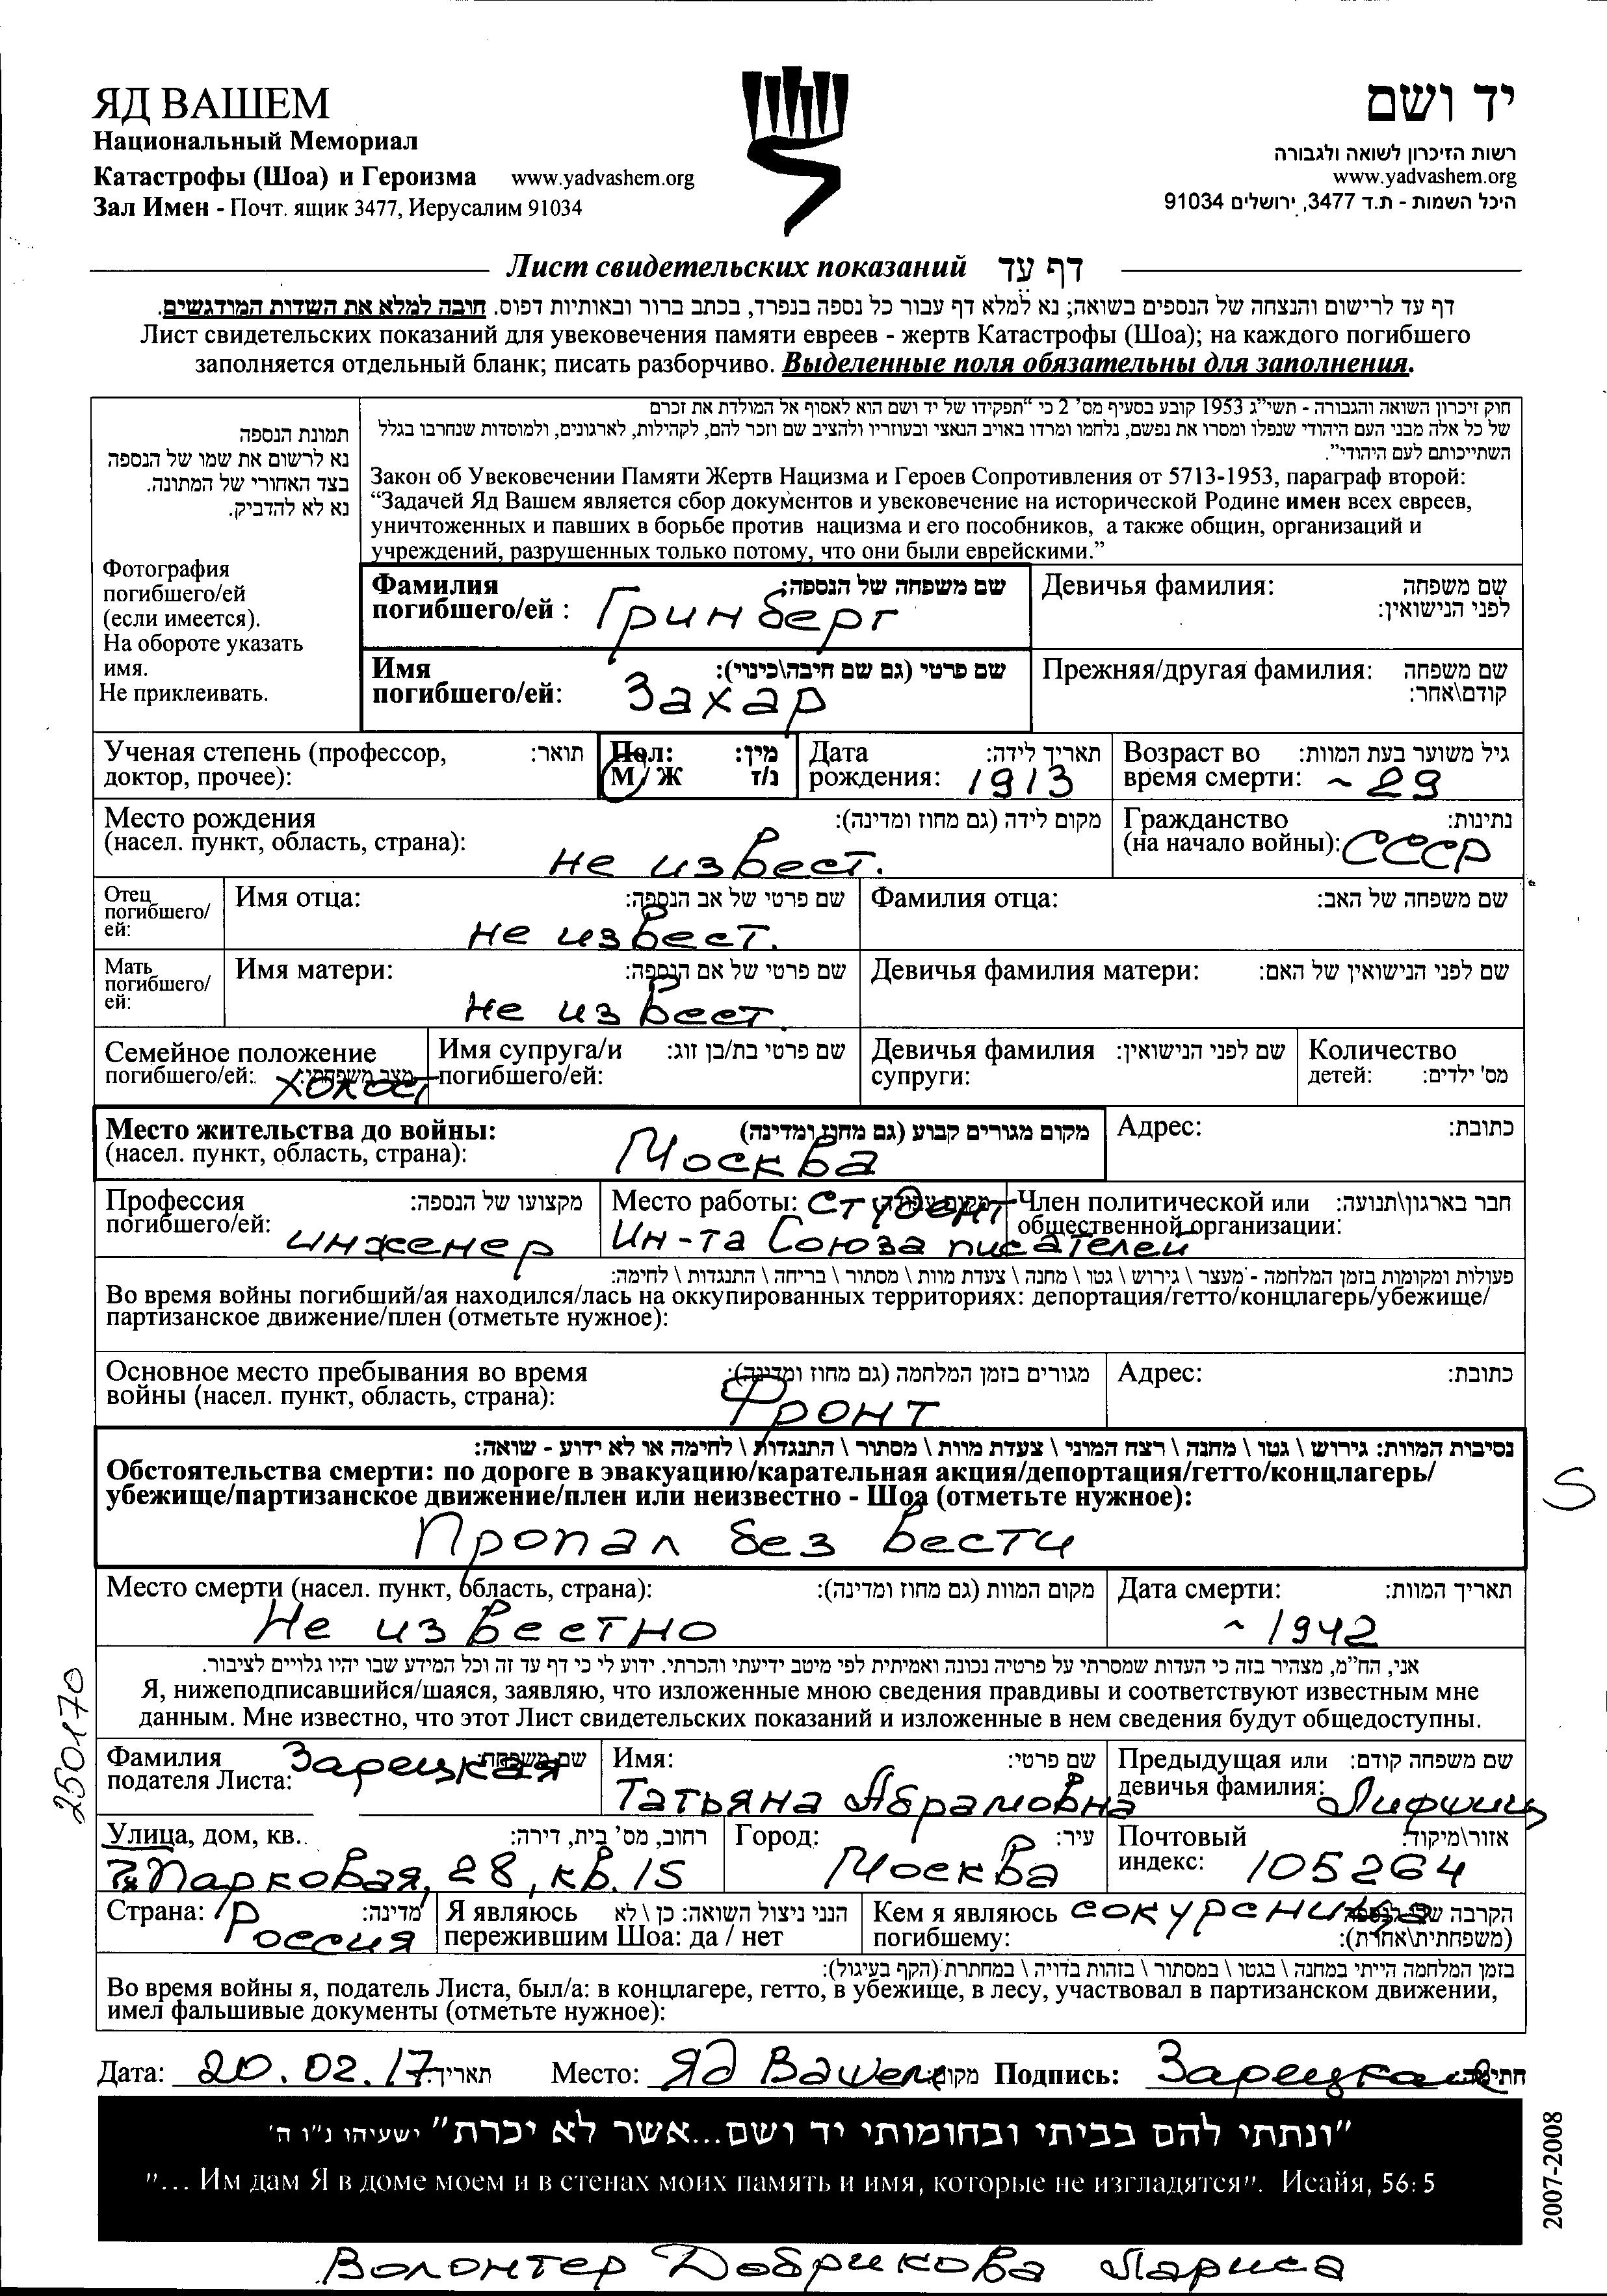 ЯД ВАШЕМ
Национальный Мемориал
Катастрофы (Шоа) и Героизма www.yadvashem.org
Зал Имен - Почт. ящик 3477, Иерусалим 91034
יד ושם
רשות הזיכרון לשואה ולגבורה
www.yadvashem.org
היכל השמות - ת.ד 3477, ירושלים 91034
Лист свидетельских показаний דף עד
דף עד לרישום והנצחה של הנספים בשואה; נא למלא דף עבור כל נספה בנפרד, בכתב ברור ובאותיות דפוס. חובה למלא את השדות המודגשים.
Лист свидетельских показаний для увековечения памяти евреев - жертв Катастрофы (Шоа); на каждого погибшего
заполняется отдельный бланк; писать разборчиво. Выделенные поля обязательны для заполнения.
תמונת הנספה
נא לרשום את שמו של הנספה
בצד האחורי של המתונה.
נא לא להדביק.
Фотография
погибшего/ей
(если имеется).
На обороте указать
имя.
Не приклеивать.
חוק זיכרון השואה והגבורה - תשי"ג 1953 קובע בסעיף מס' 2 כי "תפקידו של יד ושם הוא לאסוף אל המולדת את זכרם
של כל אלה מבני העם היהודי שנפלו ומסרו את נפשם, נלחמו ומרדו באויב הנאצי ובעוזריו ולהציב שם וזכר להם, לקהילות, לארגונים, ולמוסדות שנחרבו בגלל
השתייכותם לעם היהודי".
Закон об Увековечении Памяти Жертв Нацизма и Героев Сопротивления от 5713-1953, параграф второй:
"Задачей Яд Вашем является сбор документов и увековечение на исторической Родине имен всех евреев,
уничтоженных и павших в борьбе против нацизма и его пособников, а также общин, организаций и
учреждений, разрушенных только потому, что они были еврейскими."
Фамилия שם משפחה של הנספה:
погибшего/ей : Гринберг
Девичья фамилия: שם משפחה
לפני הנישואין:
Имя שם פרטי (גם שם חיבה\כינוי):
погибшего/ей: Захар
Прежняя/другая фамилия: שם משפחה
קודם\אחר:
Ученая степень (профессор, תואר:
доктор, прочее):
Пол: מין:
М/Ж נ/ז
Дата תאריך לידה:
рождения: 1913
Возраст во גיל משוער בעת המוות:
время смерти: ~ 29
Место рождения מקום לידה (גם מחוז ומדינה):
(насел. пункт, область, страна): не извест.
Гражданство נתינות:
(на начало войны): СССР
Отец
погибшего/
ей:
Имя отца: שם פרטי של אב הנספה:
не извест.
Фамилия отца: שם משפחה של האב:
Мать
погибшего/
ей:
Имя матери: שם פרטי של אם הנספה:
не извест.
Девичья фамилия матери: שם לפני הנישואין של האם:
Семейное положение
погибшего/ей: מצב משפחתי: холост
Имя супруга/и שם פרטי בת/בן זוג:
погибшего/ей:
Девичья фамилия שם לפני הנישואין:
супруги:
Количество
детей: מס' ילדים:
Место жительства до войны: מקום מגורים קבוע (גם מחוז ומדינה)
(насел. пункт, область, страна): Москва
Адрес: כתובת:
Профессия מקצועו של הנספה:
погибшего/ей: инженер
Место работы: מקום עבודה: студент
Ин-та Союза писателей
Член политической или חבר בארגון\תנועה:
общественной организации:
פעולות ומקומות בזמן המלחמה - מעצר \ גירוש \ גטו \ מחנה \ צעדת מוות \ מסתור \ בריחה \ התנגדות \ לחימה:
Во время войны погибший/ая находился/лась на оккупированных территориях: депортация/гетто/концлагерь/убежище/
партизанское движение/плен (отметьте нужное):
Основное место пребывания во время מגורים בזמן המלחמה (גם מחוז ומדינה):
войны (насел. пункт, область, страна): Фронт
Адрес: כתובת:
נסיבות המוות: גירוש \ גטו \ מחנה \ רצח המוני \ צעדת מוות \ מסתור \ התנגדות \ לחימה או לא ידוע - שואה:
Обстоятельства смерти: по дороге в эвакуацию/карательная акция/депортация/гетто/концлагерь/
убежище/партизанское движение/плен или неизвестно - Шоа (отметьте нужное):
Пропал без вести
S
Место смерти (насел. пункт, область, страна): מקום המוות (גם מחוז ומדינה):
Не известно
Дата смерти: תאריך המוות:
~ 1942
אני, הח"מ, מצהיר בזה כי העדות שמסרתי על פרטיה נכונה ואמיתית לפי מיטב ידיעתי והכרתי. ידוע לי כי דף עד זה וכל המידע שבו יהיו גלויים לציבור.
Я, нижеподписавшийся/шаяся, заявляю, что изложенные мною сведения правдивы и соответствуют известным мне
данным. Мне известно, что этот Лист свидетельских показаний и изложенные в нем сведения будут общедоступны.
250170
Фамилия שם משפחה: Зарецкая
подателя Листа:
Имя: שם פרטי:
Татьяна Абрамовна
Предыдущая или שם משפחה קודם:
девичья фамилия: Лифшиц
Улица, дом, кв.. רחוב, מס' בית, דירה:
7я Парковая, 28, кв. 15
Город: עיר:
Москва
Почтовый אזור\מיקוד:
индекс: 105264
Страна: מדינה:
Россия
Я являюсь הנני ניצול השואה: כן \ לא
пережившим Шоа: да / нет
Кем я являюсь сокурсница הקרבה שלי לנספה
погибшему: (משפחתית\אחרת):
בזמן המלחמה הייתי במחנה \ בגטו \ במסתור \ בזהות בדויה \ במחתרת (הקף בעיגול):
Во время войны я, податель Листа, был/а: в концлагере, гетто, в убежище, в лесу, участвовал в партизанском движении,
имел фальшивые документы (отметьте нужное):
Дата: 20.02.17 תאריך: Место: Яд Вашем מקום: Подпись: Зарецкая חתימה:
"ונתתי להם בביתי ובחומותי יד ושם...אשר לא יכרת" ישעיהו נ"ו ה'
"... Им дам Я в доме моем и в стенах моих память и имя, которые не изгладятся". Исайя, 56: 5
2007-2008
Волонтер Добрикова Лариса